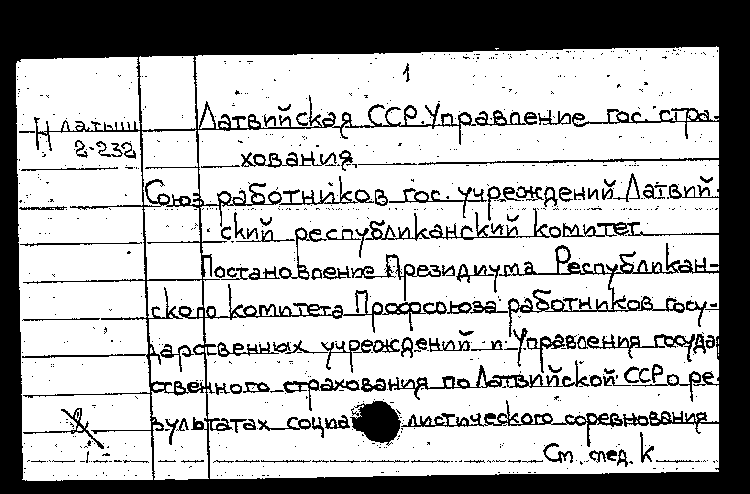 1
Латвийская ССР. Управление гос. стра-
Н латыш
2-232
хования.
Союз работников гос. учреждений. Латвий-
ский республиканский комитет.
Постановление Президиума Республикан-
ского комитета Профсоюза работников госу-
дарственных учреждений и Управления государ
ственного страхования по Латвийской ССР о ре-
зультатах социалистического соревнования
См. след. к